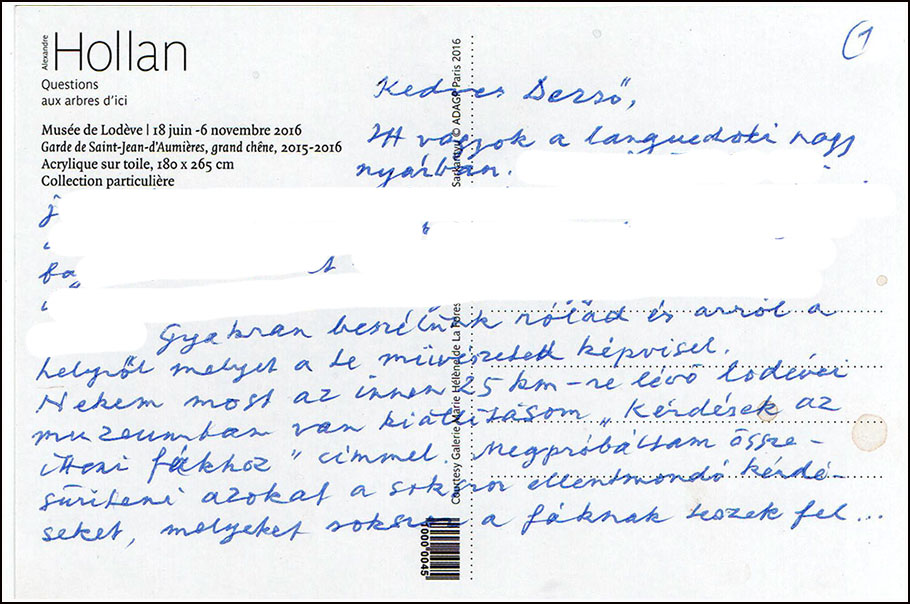 Alexandre
Hollan
Questions
aux arbres d'ici
Musée de Lodève | 18 juin -6 novembre 2016
Garde de Saint-Jean-d'Aumières, grand chêne, 2015-2016
Acrylique sur toile, 180 x 265 cm
Collection particulière
1
Kedves Dezső,
Itt vagyok a languedoki nagy
nyárban.
Gyakran beszélünk rólad és arról a
helyről melyet a te művészeted képvisel.
Nekem most az innen 25 km-re lévő lodévei
muzeumban van kiállításom „Kérdések az
itteni fákhoz" címmel. Megpróbáltam össze-
sűríteni azokat a sokszor ellentmondó kérdé-
seket, melyeket sokszor a fáknak teszek fel...
Courtesy Galerie Marie Hélène de La Fores
© ADAGP Paris 2016
1000 0045